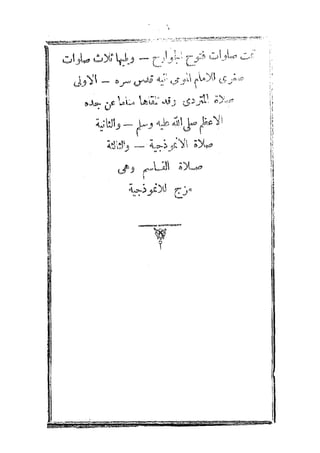 تمت صلوات فتوح الجوارح – ويليها ثلاث صلوات
صغرى للامام المومى اليه قدس سره – الاولى
صلاة وقد تلقاها مناما عن جده
الاعظم صلى الله عليه وسلم – والثانية
صلاة الانموذجية – والثالثة
صلاة القاسم وهى
مزج للانموذجية